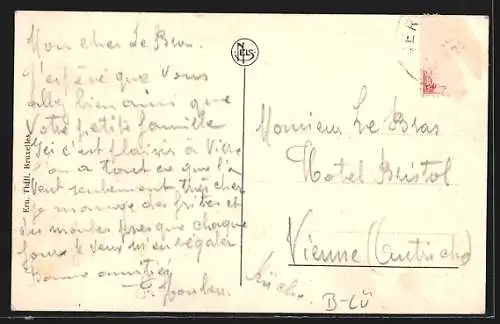 Mon cher Le Bras.
J'espère que vous
allez bien ainsi que
Votre petite famille
Ici c'est plaisir à Vivre
l'on a tout ce que l'on
Veut seulement très cher
Je mange des frites et
des moules presque chaque
jour Je veux m'en régaler
Bonne amitiés
Ern. Thill, Bruxelles
NELS
Monsieur Le Bras
Hotel Bristol
Vienne (Autriche)
B-Lü